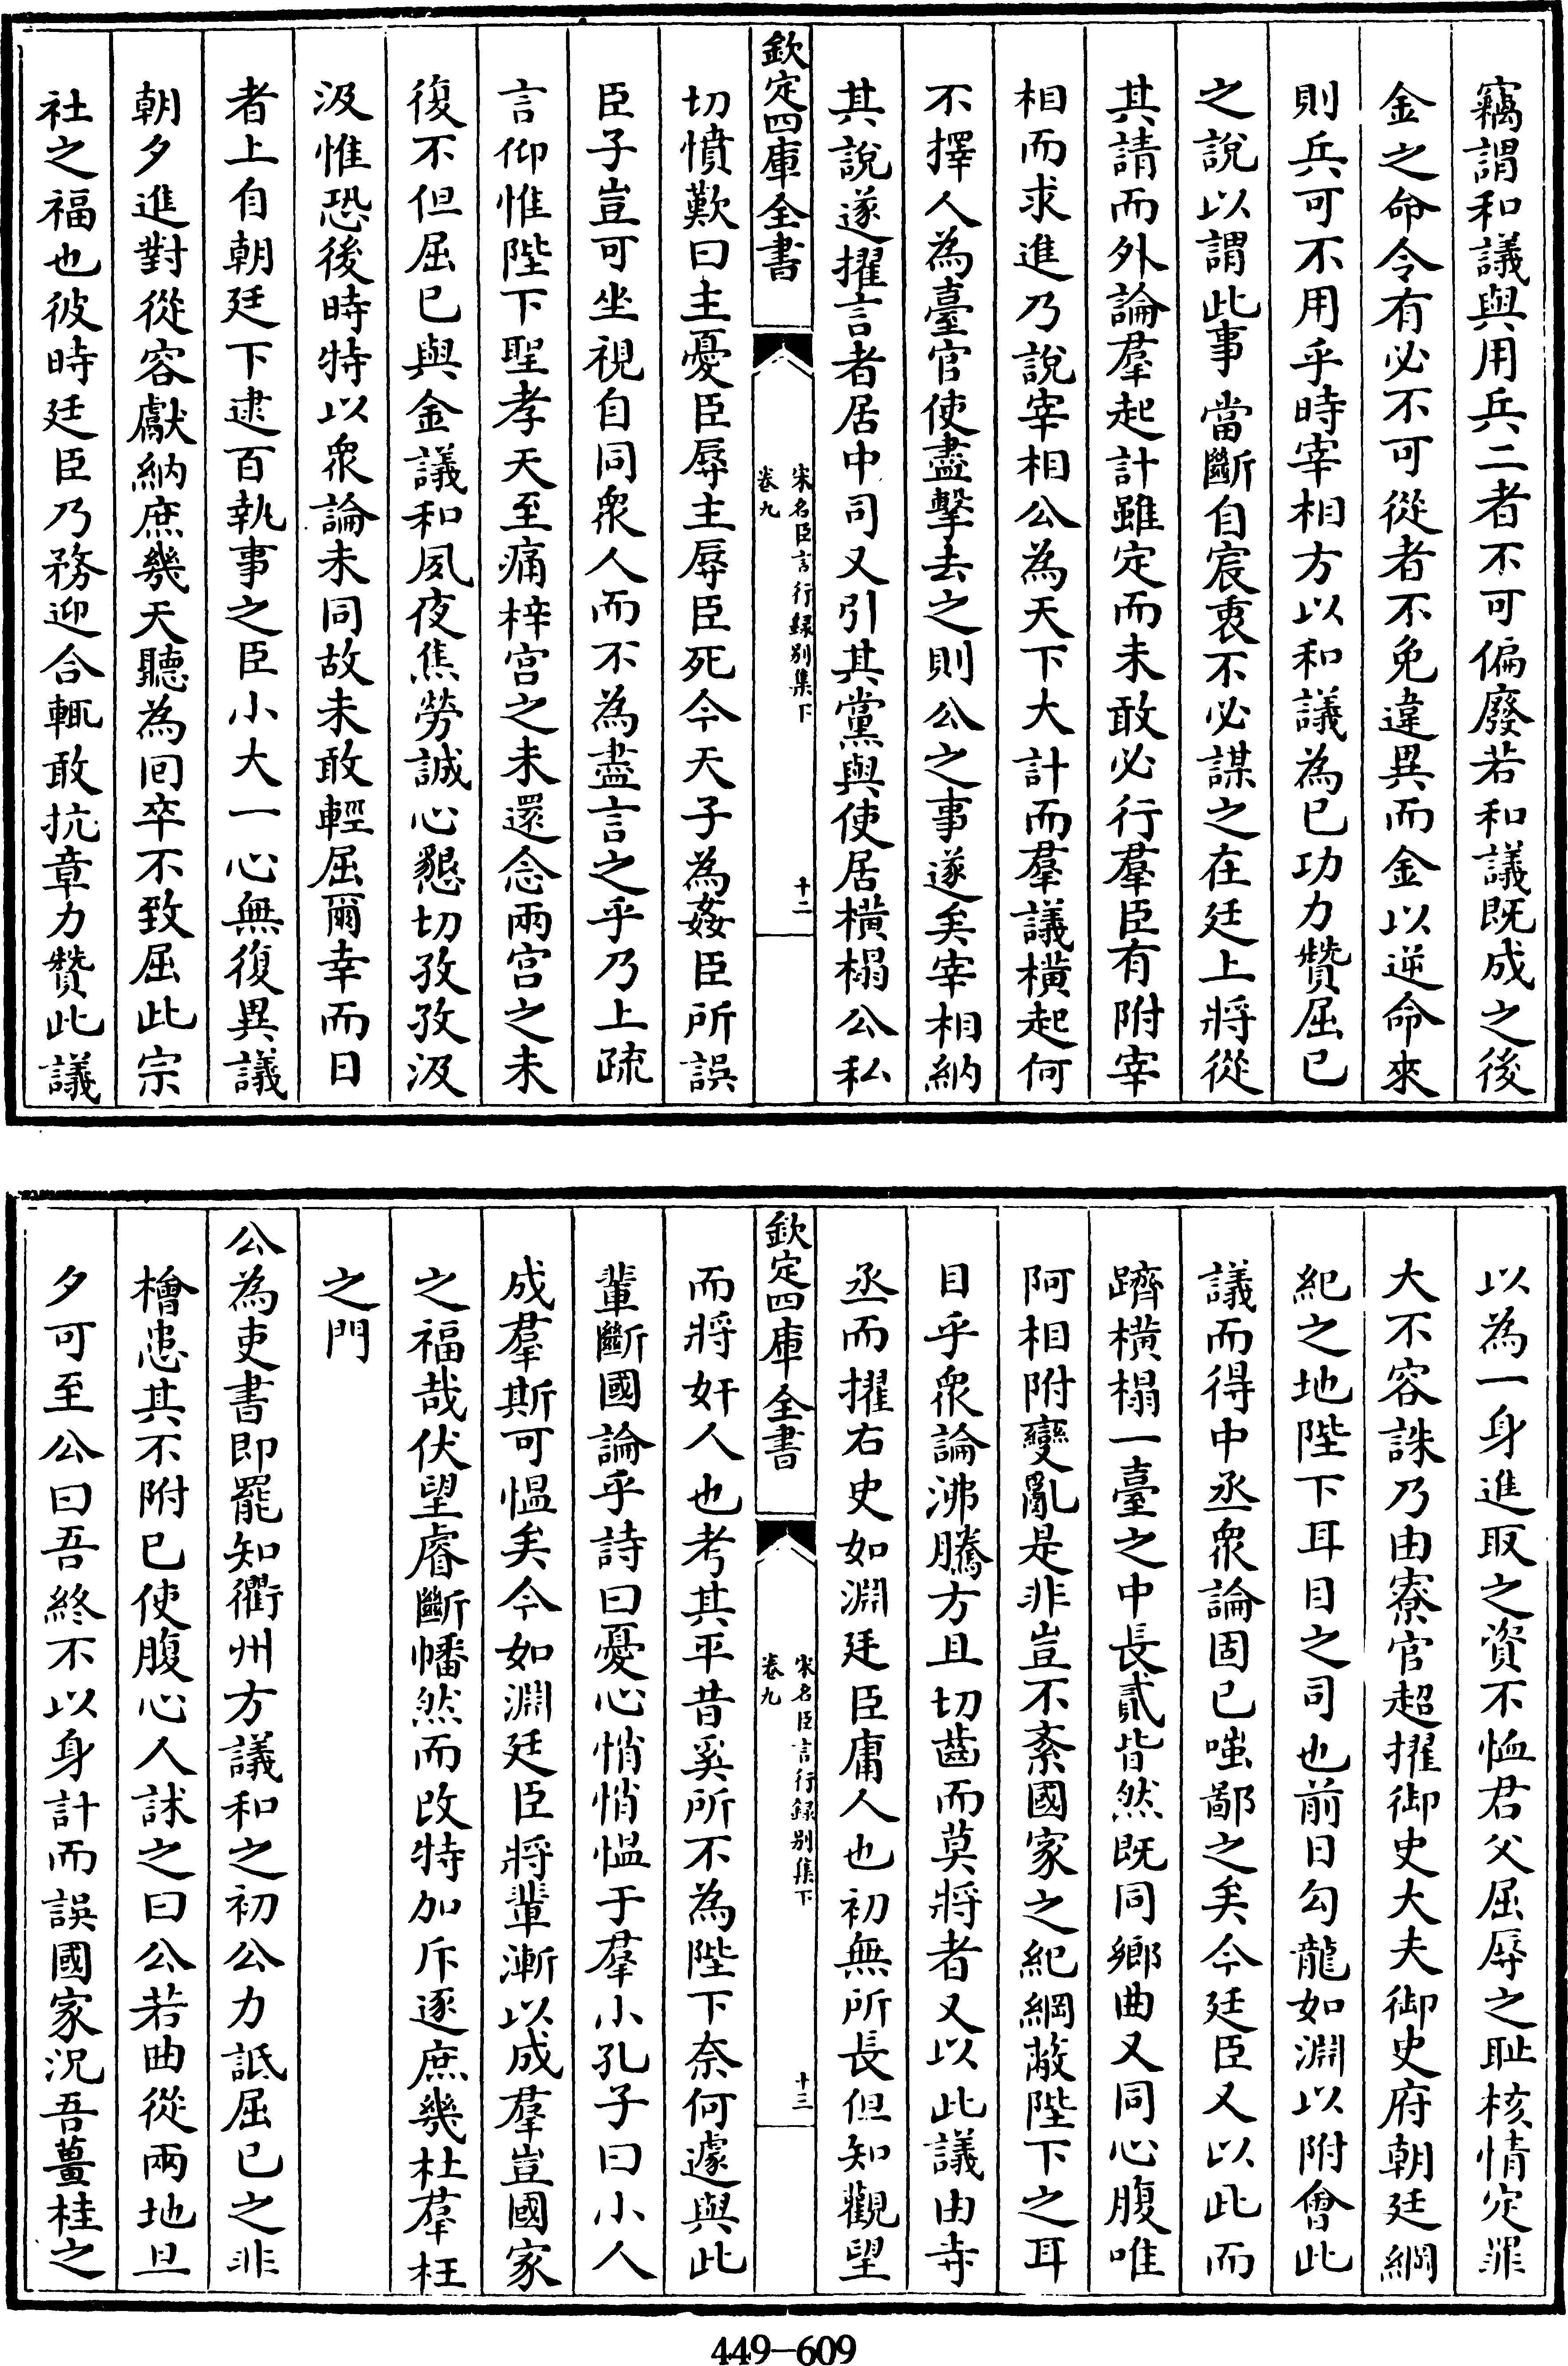 竊謂和議與用兵二者不可偏廢若和議既成之後
金之命令有必不可從者不免違異而金以逆命來
則兵可不用乎時宰相方以和議為已功力贊屈已
之說以謂此事當斷自宸衷不必謀之在廷上將從
其請而外論羣起計雖定而未敢必行羣臣有附宰
相而求進乃說宰相公為天下大計而羣議橫起何
不擇人為臺官使盡擊去之則公之事遂矣宰相納
其說遂擢言者居中司又引其黨與使居橫榻公私
欽定四庫全書
宋名臣言行録别集下
卷九
十二
切憤歎曰主憂臣辱主辱臣死今天子為姦臣所誤
臣子豈可坐視自同衆人而不為盡言之乎乃上疏
言仰惟陛下聖孝天至痛梓宫之未還念兩宫之未
復不但屈已與金議和夙夜焦勞誠心懇切孜孜汲
汲惟恐後時特以衆論未同故未敢輕屈爾幸而日
者上自朝廷下逮百執事之臣小大一心無復異議
朝夕進對從容獻納庶幾天聽為囘卒不致屈此宗
社之福也彼時廷臣乃務迎合輒敢抗章力贊此議
以為一身進取之資不恤君父屈辱之耻核情定罪
大不容誅乃由寮官超擢御史大夫御史府朝廷綱
紀之地陛下耳目之司也前日勾龍如淵以附會此
議而得中丞衆論固已嗤鄙之矣今廷臣又以此而
躋橫榻一臺之中長貳皆然既同鄉曲又同心腹唯
阿相附變亂是非豈不紊國家之紀綱蔽陛下之耳
目乎衆論沸騰方且切齒而莫將者又以此議由寺
丞而擢右史如淵廷臣庸人也初無所長但知觀望
欽定四庫全書
宋名臣言行録别集下
卷九
十三
而將奸人也考其平昔奚所不為陛下奈何遽與此
輩斷國論乎詩曰憂心悄悄愠于羣小孔子曰小人
成羣斯可愠矣今如淵廷臣將輩漸以成羣豈國家
之福哉伏望睿斷幡然而改特加斥逐庶幾杜羣枉
之門
公為吏書即罷知衢州方議和之初公力詆屈已之非
檜患其不附已使腹心人訹之曰公若曲從兩地旦
夕可至公曰吾終不以身計而誤國家況吾薑桂之
449-609